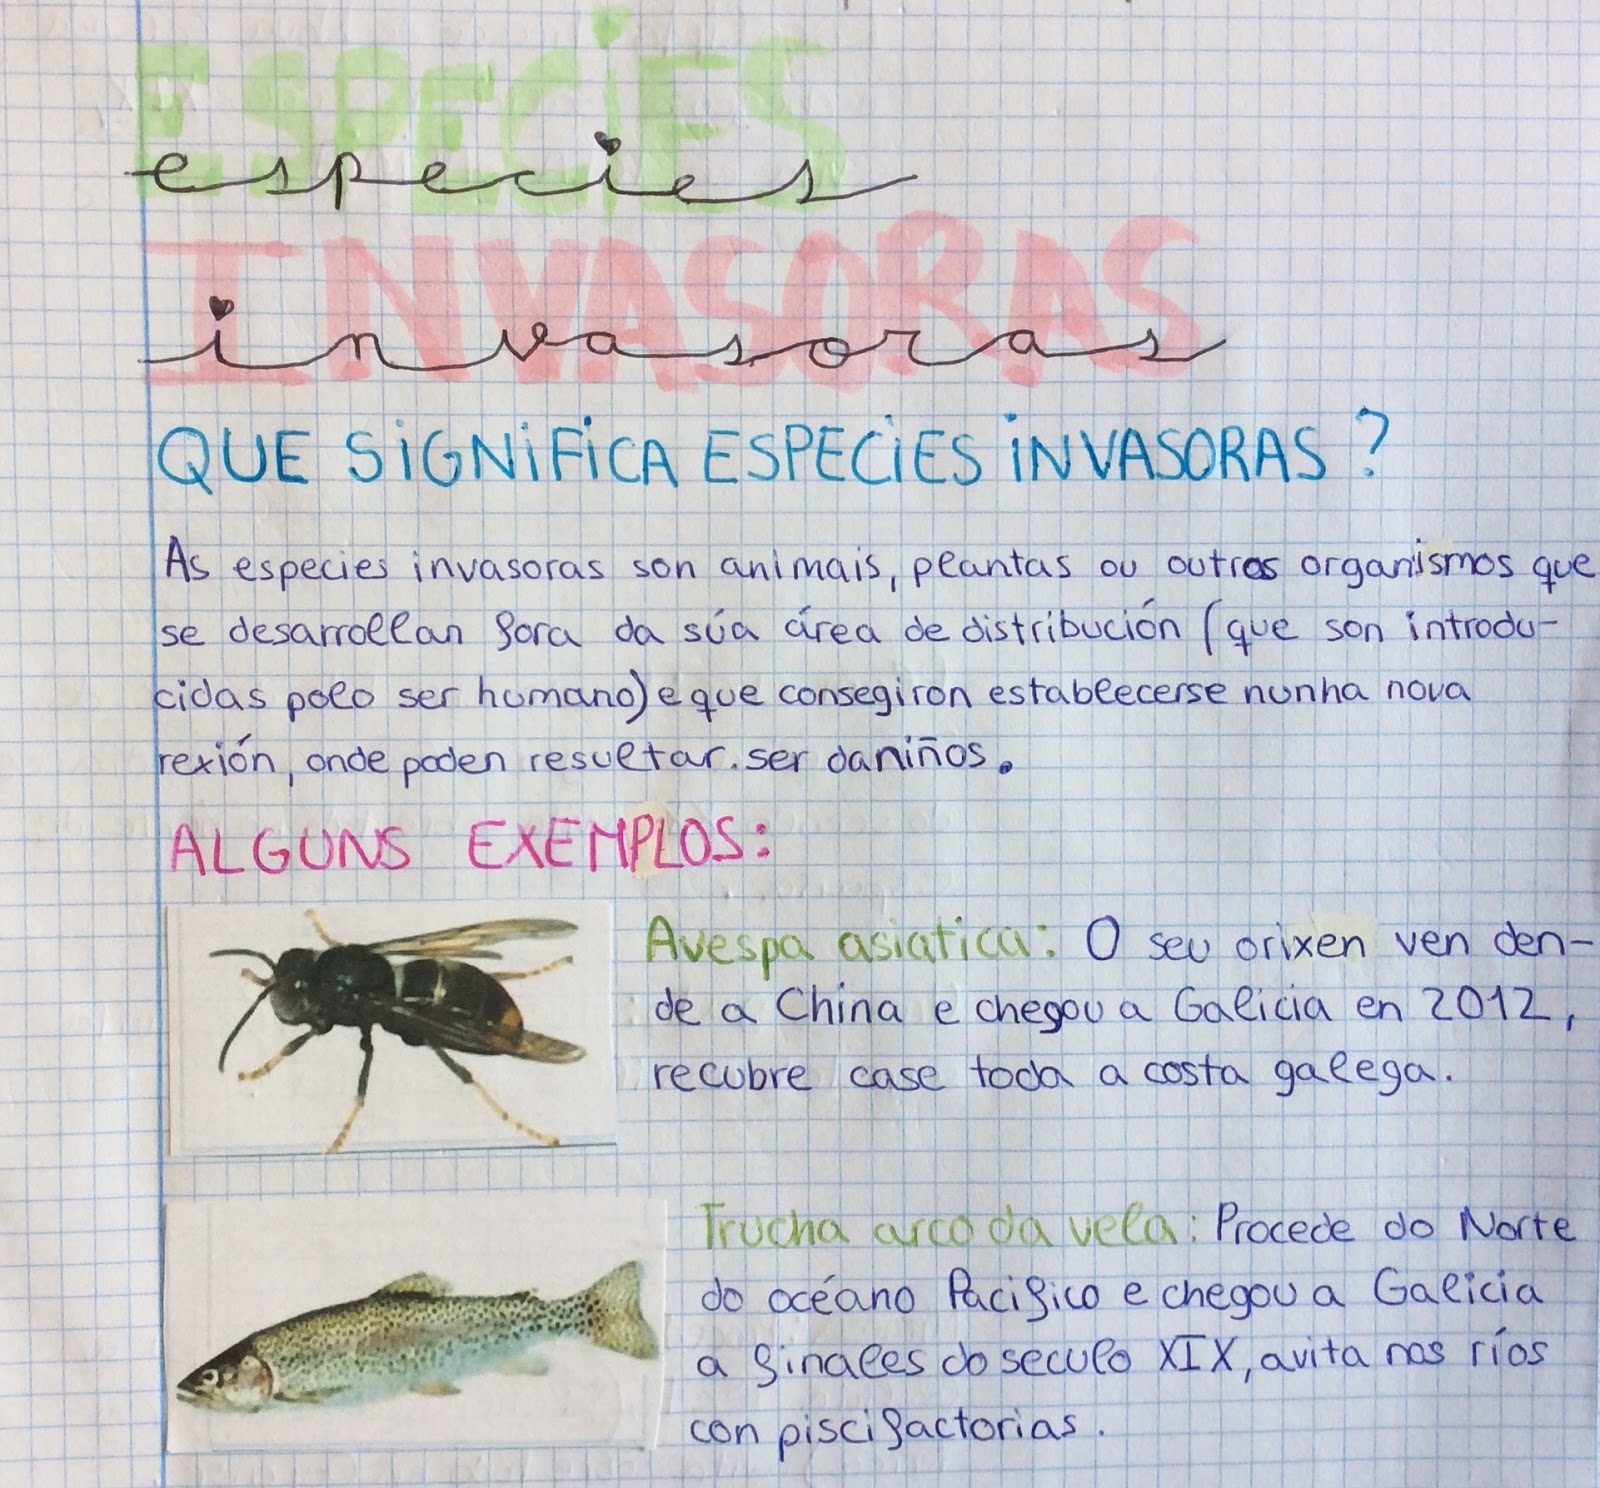 ESPECIES
especies
INVASORAS
invasoras
QUE SIGNIFICA ESPECIES INVASORAS?
As especies invasoras son animais, plantas ou outros organismos que
se desarrollan fora da súa área de distribución (que son introdu-
cidas polo ser humano) e que consegiron establecerse nunha nova
rexión, onde poden resultar. ser daniños.
ALGUNS EXEMPLOS:
Avespa asiatica: O seu orixen ven den-
de a China e chegou a Galicia en 2012,
recubre case toda a costa galega.
Trucha arco da vela: Procede do Norte
do océano Pacifico e chegou a Galicia
a finales do seculo XIX, avita nos ríos
con piscifactorias.